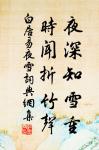 夜深知雪重
時聞折竹聲
白居易夜雪詞典網集